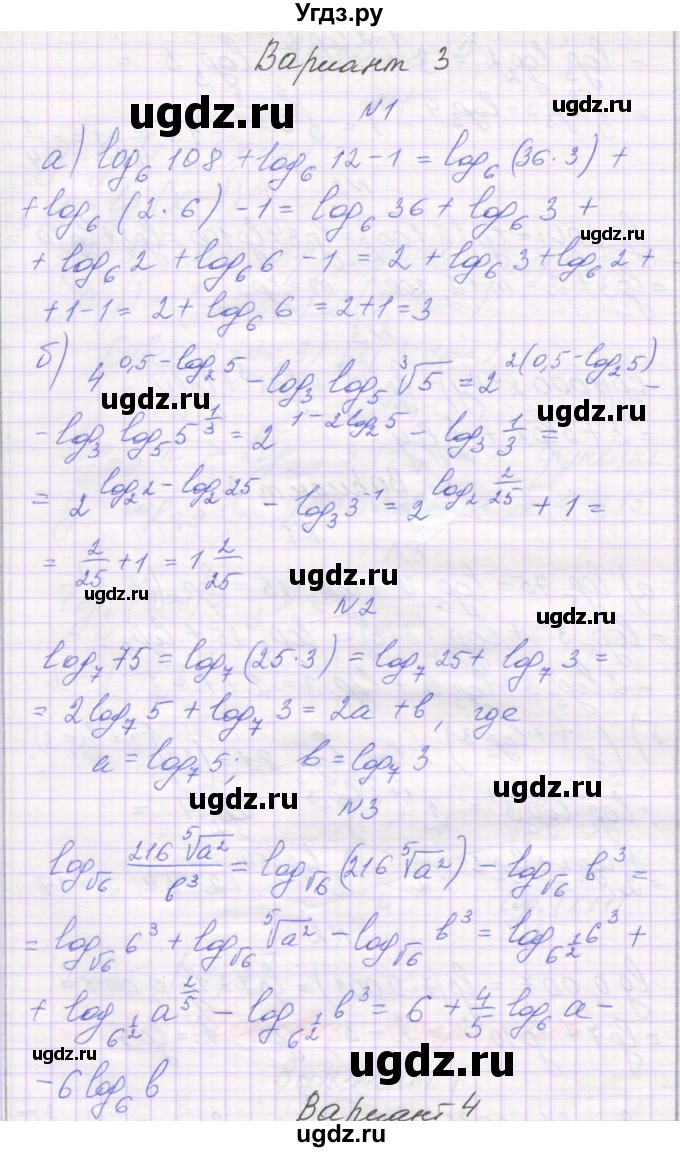 Угдз.ру
Вариант 3
ugdz.ru
ugdz.ru
N1
а) log₆ 108 + log₆ 12 - 1 = log₆ (36·3) +
+ log₆ (2·6) - 1 = log₆ 36 + log₆ 3 +
ugdz.ru
+ log₆ 2 + log₆ 6 - 1 = 2 + log₆ 3 + log₆ 2 +
+ 1 - 1 = 2 + log₆ 6 = 2 + 1 = 3
б) 4^(0,5 - log₂ 5) - log₃ log₅ ∛5 = 2^(2(0,5 - log₂ 5)) -
ugdz.ru
ugdz.ru
- log₃ log₅ 5^(1/3) = 2^(1 - 2log₂ 5) - log₃ 1/3 =
= 2^(log₂ 2 - log₂ 25) - log₃ 3⁻¹ = 2^(log₂ 2/25) + 1 =
= 2/25 + 1 = 1 2/25
ugdz.ru
ugdz.ru
N2
ugdz.ru
log₇ 75 = log₇ (25·3) = log₇ 25 + log₇ 3 =
= 2log₇ 5 + log₇ 3 = 2a + b, где
ugdz.ru
a = log₇ 5; b = log₇ 3
ugdz.ru
ugdz.ru
N3
log_√6 (216 ⁵√a²)/b³ = log_√6 (216 ⁵√a²) - log_√6 b³ =
ugdz.ru
= log_√6 6³ + log_√6 ⁵√a² - log_√6 b³ = log_6^(1/2) 6³ +
ugdz.ru
+ log_6^(1/2) a^(2/5) - log_6^(1/2) b³ = 6 + 4/5 log₆ a -
ugdz.ru
ugdz.ru
- 6 log₆ b
Вариант 4
ugdz.ru